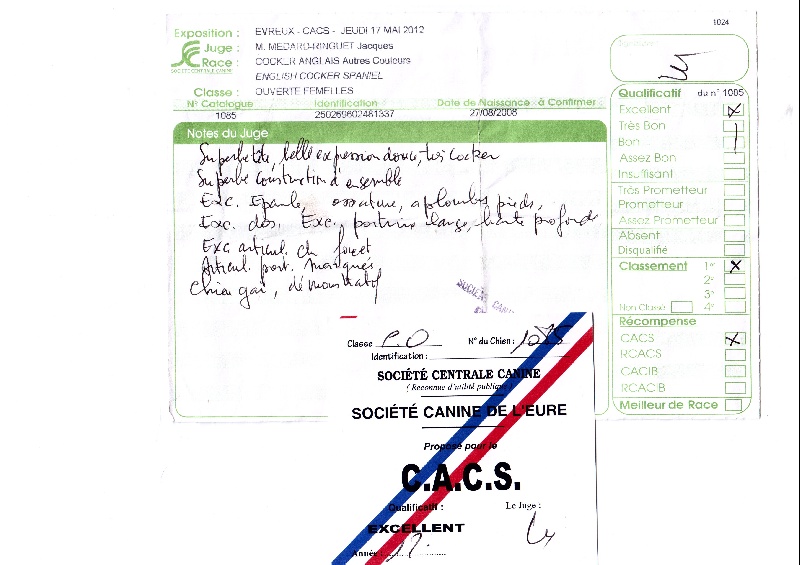 1024
Exposition : EVREUX - CACS - JEUDI 17 MAI 2012
Juge : M. MEDARD-RINGUET Jacques
Race : COCKER ANGLAIS Autres Couleurs
ENGLISH COCKER SPANIEL
SOCIÉTÉ CENTRALE CANINE
Classe : OUVERTE FEMELLES
N° Catalogue Identification Date de Naissance à Confirmer
1085 250269602481337 27/08/2008
Notes du Juge
Superbe tête, belle expression douce, très Cocker
Superbe construction d'ensemble
Exc. Epaule, ossature, aplombs, pieds,
Exc. dos. Exc. poitrine large, haute profonde
Exc articul. du fouet
Articul. post. marqués
Chien gai, démonstratif
SOCIÉTÉ CANINE
Qualificatif du n° 1085
Excellent X
Très Bon
Bon
Assez Bon
Insuffisant
Très Prometteur
Prometteur
Assez Prometteur
Absent
Disqualifié
Classement 1er X
2e
3e
Non Classé 4e
Récompense
CACS X
RCACS
CACIB
RCACIB
Meilleur de Race
Classe C.O N° du Chien : 1085
Identification :
SOCIÉTÉ CENTRALE CANINE
( Reconnue d'utilité publique )
SOCIÉTÉ CANINE DE L'EURE
Proposé pour le
C.A.C.S.
Qualificatif : Le Juge :
EXCELLENT
Année : 12